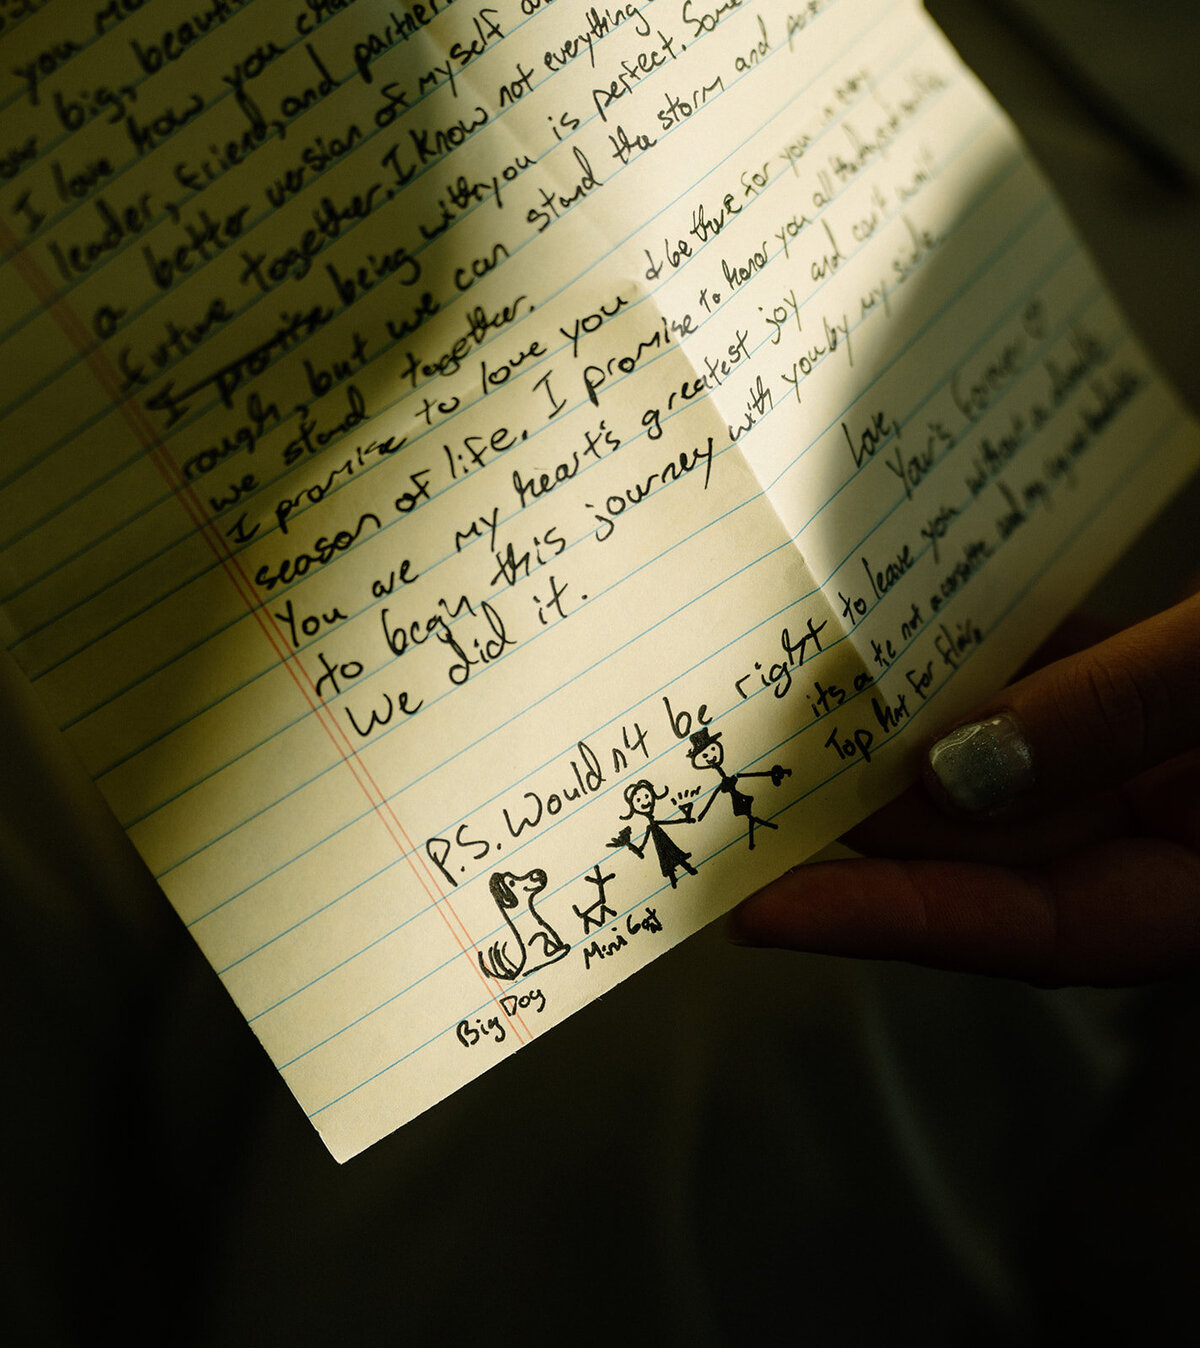 you
our big, beauti
I love how you cha
leader, friend, and partner.
a better version of myself
future together. I know not everything
I promise being with you is perfect. Some
rough, but we can stand the storm and
we stand together.
I promise to love you & be there for you in every
season of life. I promise to honor you all the days of
You are my heart's greatest joy and can't wait
to begin this journey with you by my side.
We did it.
Love,
Your's Forever ♡
P.S. Wouldn't be right to leave you without a doodle
its a tie not a corsette and my
Top Hat for flair
Big Dog
Mini Cat